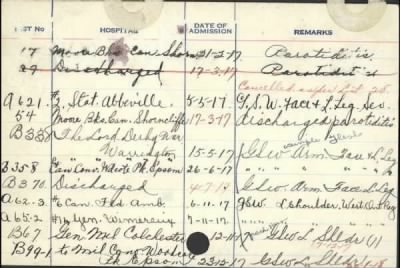 LIST No HOSPITAL DATE OF ADMISSION REMARKS
17 Moore Bks Can. Shorn 21-2-17 Parotiditis
29 Discharged 17-3-17 Parotiditis
Cancelled as per List 25.
A621. #2 Stat. Abbeville. 5-5-17. G.S.W. Face & L. Leg. Sev.
54 Moore Bks. Can. Shorncliffe 17-3-17 discharged parotiditis
B358 The Lord Derby War
Warrington 15-5-17 GSW Arm Face & L Leg
B358 Can Conv. Wdcote Pk. Epsom 26-6-17
B370 Discharged 4-7-17 GSW. Arm Face L Leg
A62-3 Can Fld Amb. 6-11-17 GSW L shoulder,
A65-2 Gen. Wimereux 7-11-17.
B67 Gen Mil Colchester 12-11-17 GSW L Shldr
B99-1 to Mil Conv Woodcote
Pk Epsom 23-12-17 GSW L Shldr